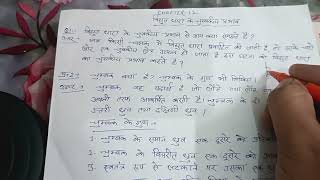 CHAPTER-12
विद्युत धारा के चुम्बकीय प्रभाव
प्रश्न-1 विद्युत धारा के चुम्बकीय प्रभाव से आप क्या समझते है?
उत्तर- जब किसी चालक में विद्युत धारा प्रवाहित की जाती है तो उसके चारो
ओर एक चुम्बकीय क्षेत्र उत्पन्न हो जाता है इस घटना को विद्युत धारा
का चुम्बकीय प्रभाव कहते है?
प्रश्न-2 चुम्बक क्या है? चुम्बक के गुण भी लिखिए।
उत्तर- चुम्बक वह पदार्थ है जो लोहे
अपनी तरफ आकर्षित करती है।
उत्तरी ध्रुव तथा दक्षिणी ध्रुव।
चुम्बक के गुण:-
1. चुम्बक के समान ध्रुव एक दूसरे को
2. चुम्बक के विपरीत ध्रुव एक दूसरे को
3. स्वतंत्र रूप से लटकाने पर उसका एक